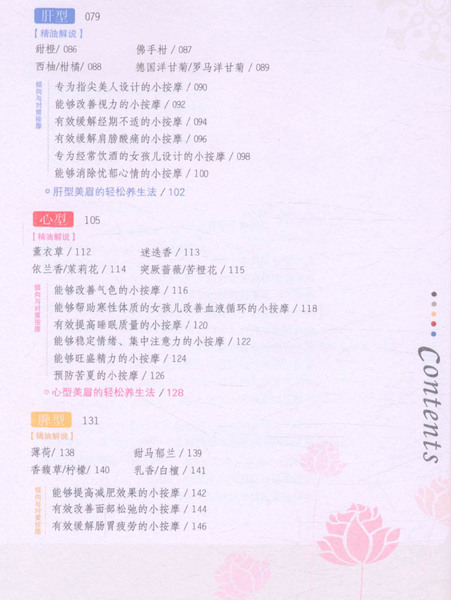 肝型 079
【精油解说】
甜橙/ 086 佛手柑 / 087
西柚/柑橘/ 088 德国洋甘菊/罗马洋甘菊 / 089
倾向与对策按摩
专为指尖美人设计的小按摩 / 090
能够改善视力的小按摩 / 092
有效缓解经期不适的小按摩 / 094
有效缓解肩膀酸痛的小按摩 / 096
专为经常饮酒的女孩儿设计的小按摩 / 098
能够消除忧郁心情的小按摩 / 100
肝型美眉的轻松养生法 / 102
心型 105
【精油解说】
薰衣草 / 112 迷迭香 / 113
依兰香/茉莉花 / 114 突厥蔷薇/苦橙花 / 115
倾向与对策按摩
能够改善气色的小按摩 / 116
能够帮助寒性体质的女孩儿改善血液循环的小按摩 / 118
有效提高睡眠质量的小按摩 / 120
能够稳定情绪、集中注意力的小按摩 / 122
能够旺盛精力的小按摩 / 124
预防苦夏的小按摩 / 126
心型美眉的轻松养生法 / 128
脾型 131
【精油解说】
薄荷/ 138 甜马郁兰 / 139
香馥草/柠檬/ 140 乳香/白檀 / 141
倾向与对策按摩
能够提高减肥效果的小按摩 / 142
有效改善面部松弛的小按摩 / 144
有效缓解肠胃疲劳的小按摩 / 146
Contents